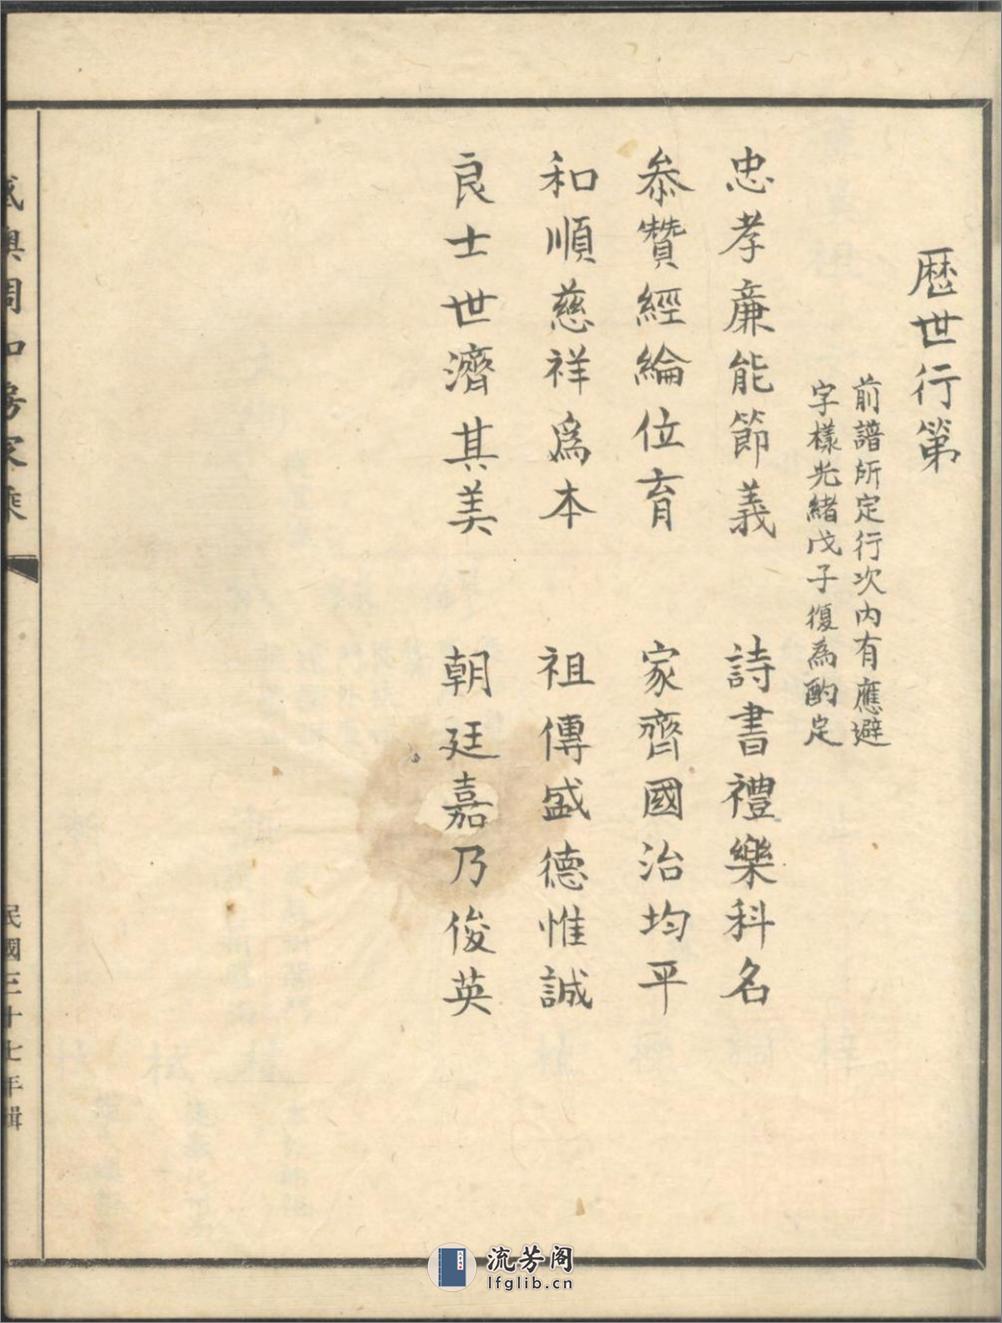 歷世行第
前譜所定行次內有應避
字樣光緒戊子復為酌定
忠孝廉能節義　詩書禮樂科名
叅贊經綸位育　家齊國治均平
和順慈祥爲本　祖傳盛德惟誠
良士世濟其美　朝廷嘉乃俊英
民國三十七年輯
流芳阁
lfglib.cn